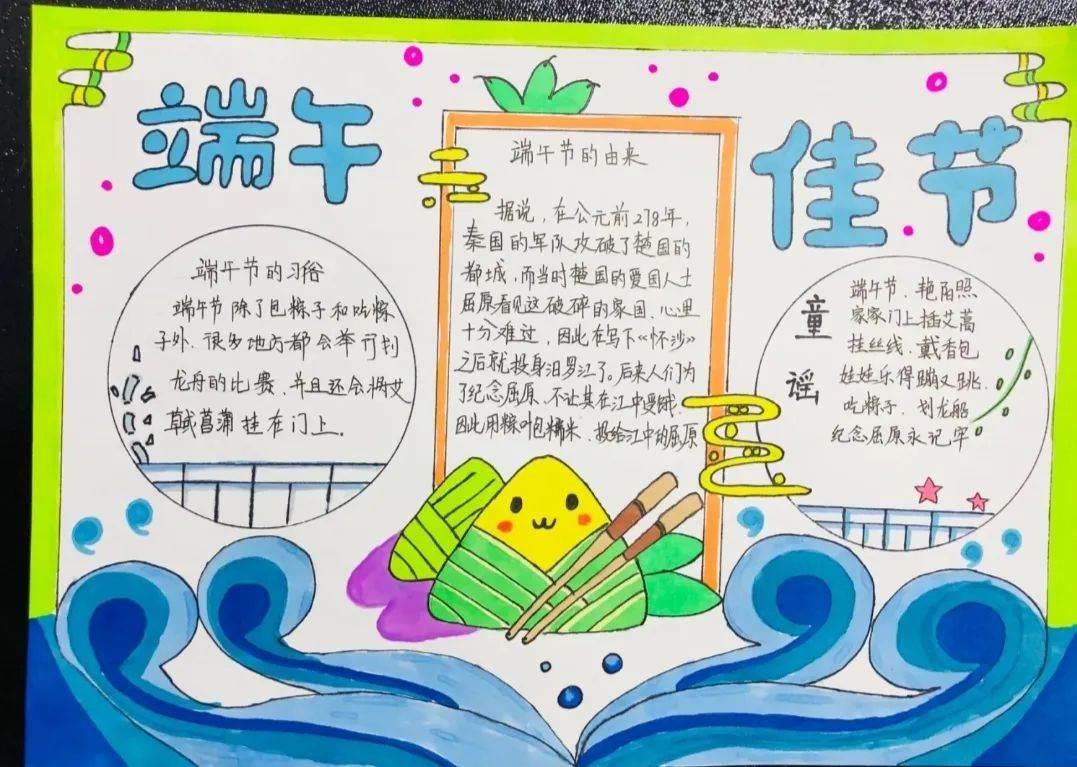 端午
佳节
端午节的习俗
端午节除了包粽子和吃粽
子外、很多地方都会举行划
龙舟的比赛、并且还会将艾
草或菖蒲挂在门上.
端午节的由来
据说，在公元前278年，
秦国的军队攻破了楚国的
都城，而当时楚国的爱国人士
屈原看见这破碎的家国、心里
十分难过，因此在写下《怀沙》
之后就投身汨罗江了。后来人们为
了纪念屈原、不让其在江中受饿.
因此用粽叶包糯米、投给江中的屈原
童谣
端午节、艳阳照
家家门上插艾蒿
挂丝线、戴香包
娃娃乐得蹦又跳.
吃粽子、划龙船
纪念屈原永记牢